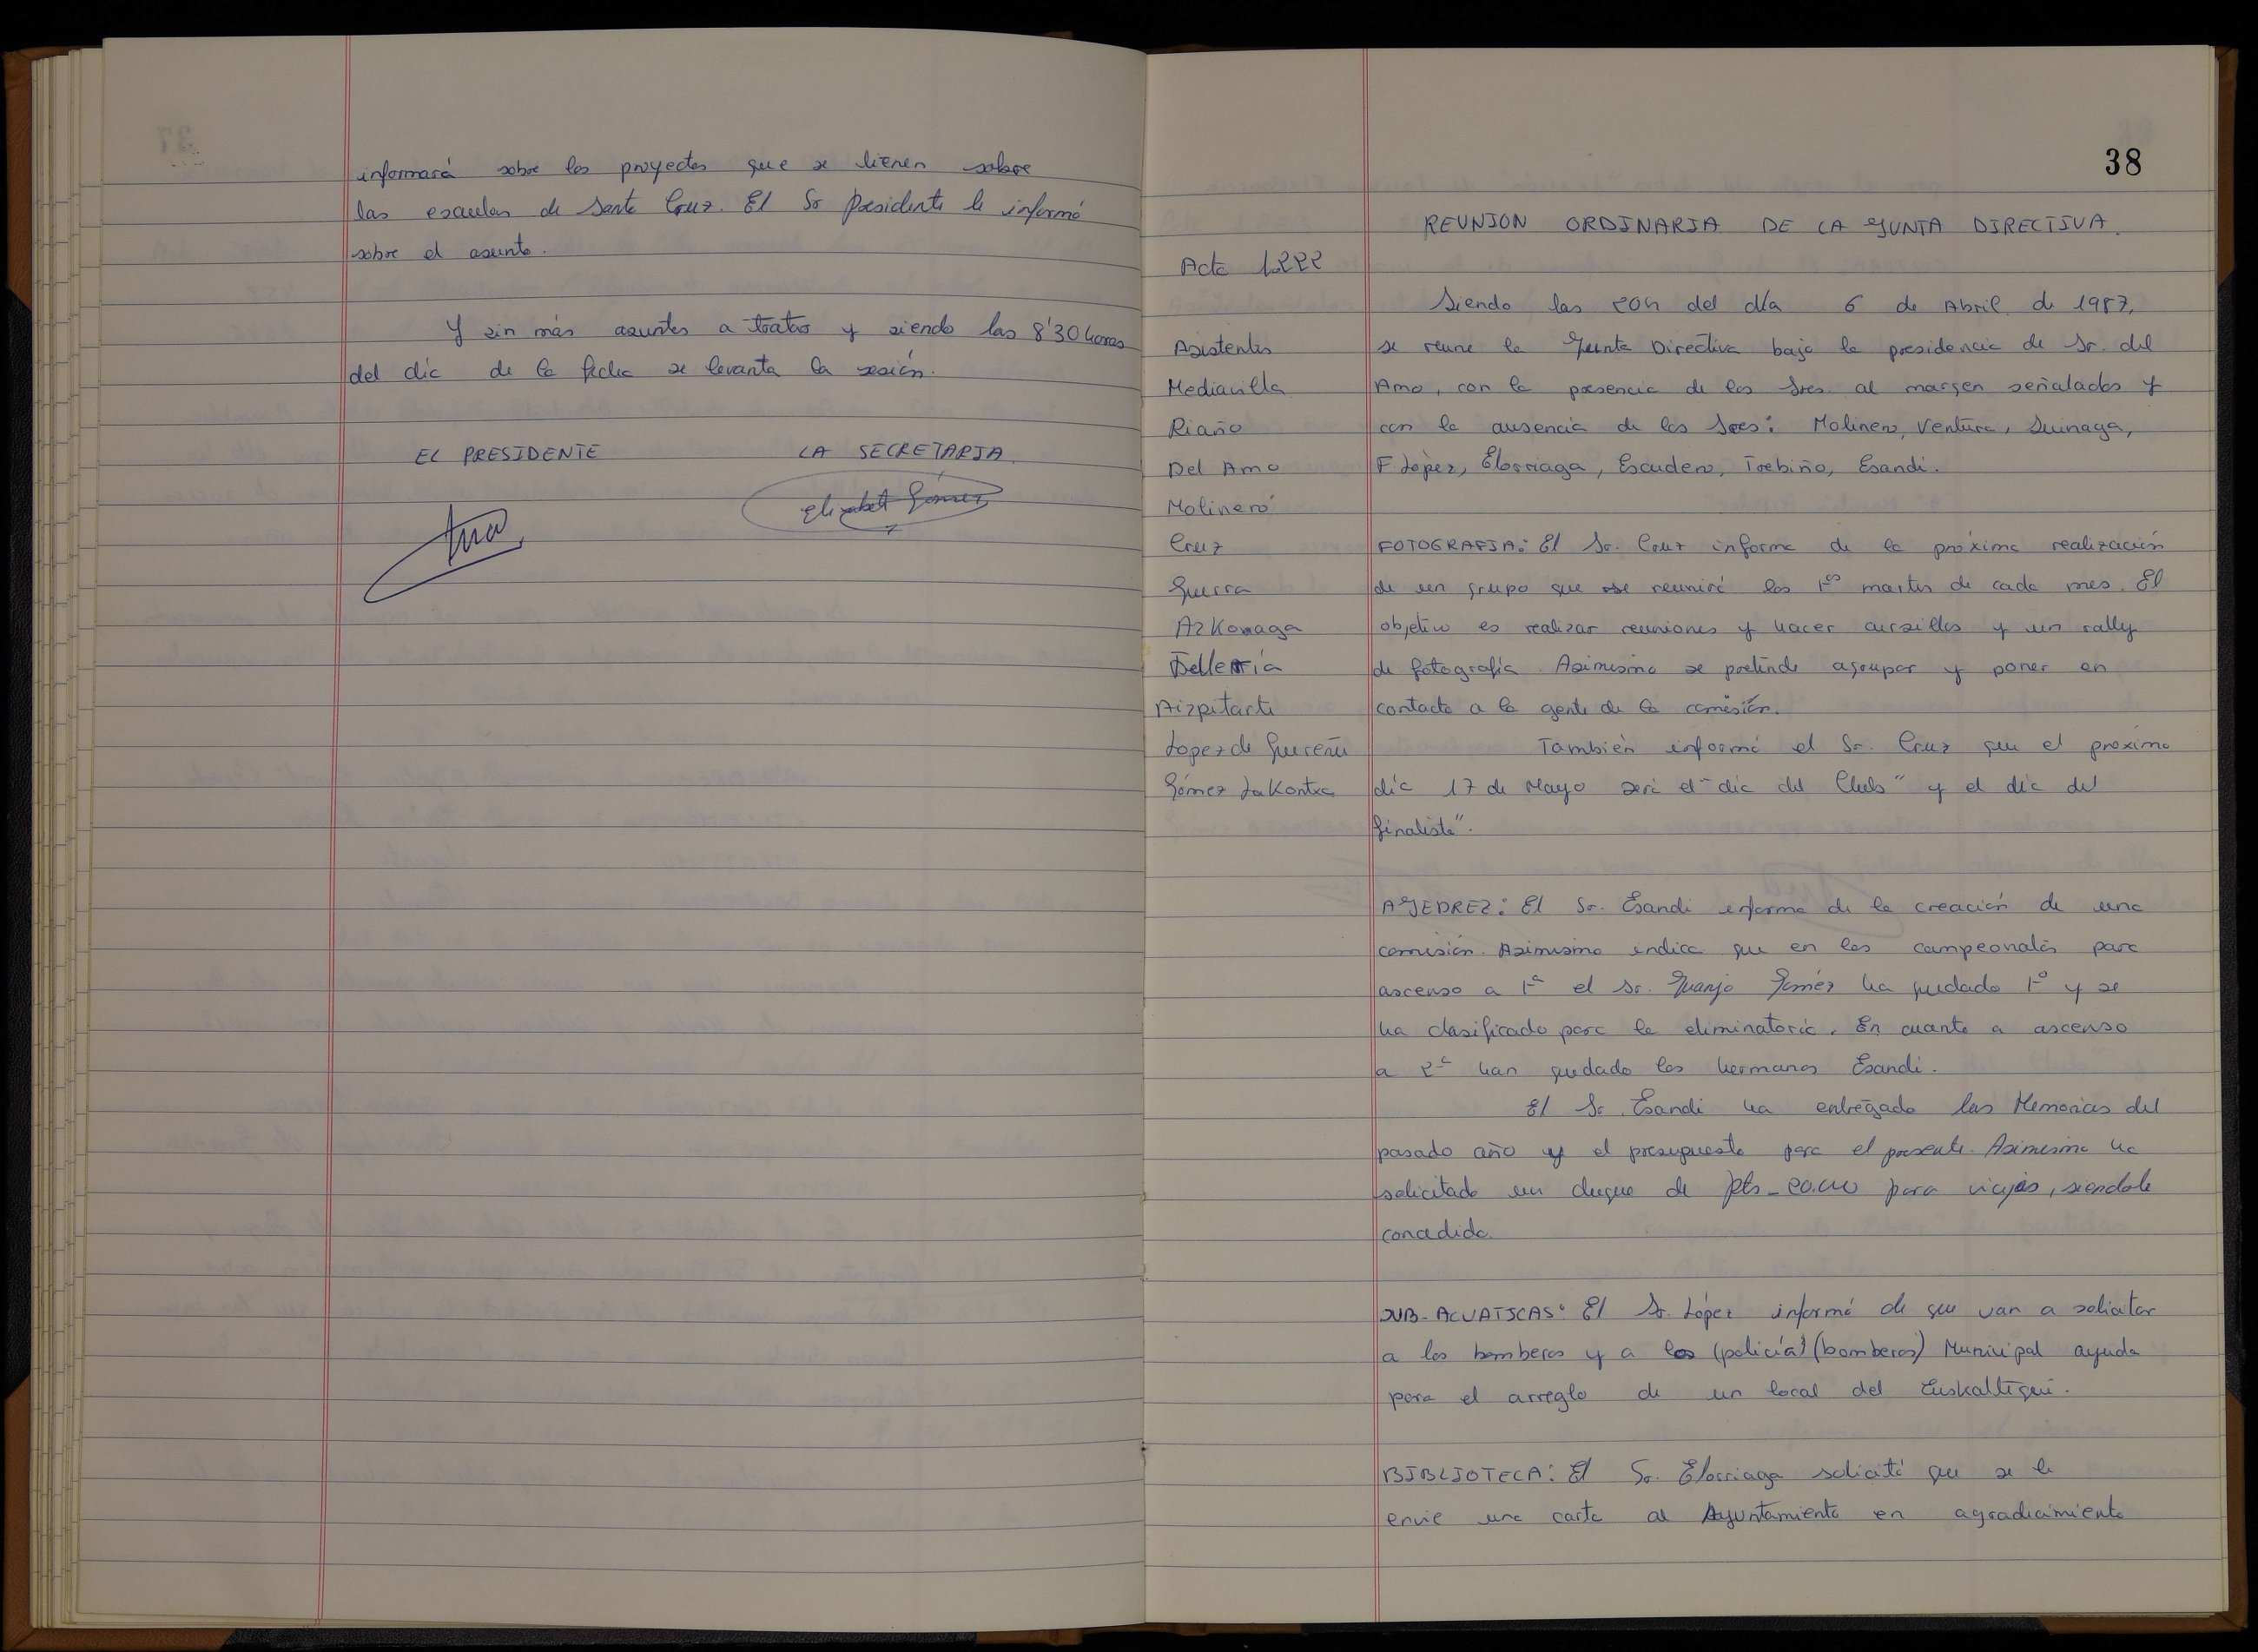 informará sobre los proyectos que se tienen sobre
las escuelas de Santa Cruz. El Sr Presidente le informó
sobre el asunto.
Y sin más asuntos a tratar y siendo las 8'30 horas
del día de la fecha se levanta la sesión.
EL PRESIDENTE LA SECRETARIA
Elizabett Gómez
38
REUNION ORDINARIA DE LA JUNTA DIRECTIVA.
Acta 1.222
Asistentes
Mediavilla
Riaño
Del Amo
Molinero
Cruz
Guerra
Azkonaga
Telleria
Aizpitarte
Lopez de Guereñu
Gómez Lakontxa
Siendo las 20h del día 6 de Abril de 1987,
se reune la Junta Directiva bajo la presidencia de Sr. del
Amo, con la presencia de los Sres. al margen señalados y
con la ausencia de los Sres: Molinero, Ventura, Suinaga,
F. López, Elorriaga, Escudero, Trebiño, Esandi.
FOTOGRAFIA: El Sr. Cruz informa de la próxima realización
de un grupo que se reunirá los 1os martes de cada mes. El
objetivo es realizar reuniones y hacer cursillos y un rally
de fotografía. Asimismo se pretende agrupar y poner en
contacto a la gente de la comisión.
También informó el Sr. Cruz que el proximo
día 17 de Mayo será el "día del Club" y el día del
finalista".
AJEDREZ: El Sr. Esandi informa de la creación de una
comisión. Asimismo indica que en los campeonatos para
ascenso a 1ª el Sr. Juanjo Gómez ha quedado 1º y se
ha clasificado para la eliminatoria. En cuanto a ascenso
a 2ª han quedado los hermanos Esandi.
El Sr. Esandi ha entregado las Memorias del
pasado año y el presupuesto para el presente. Asimismo ha
solicitado un cheque de pts- 20.000 para viajes, siendole
concedido.
SUB-ACUATICAS: El Sr. López informó de que van a solicitar
a los bomberos y a los (policía) (bomberos) Municipal ayuda
para el arreglo de un local del Euskaltegui.
BIBLIOTECA: El Sr. Elorriaga solicitó que se le
envie una carta al Ayuntamiento en agradecimiento